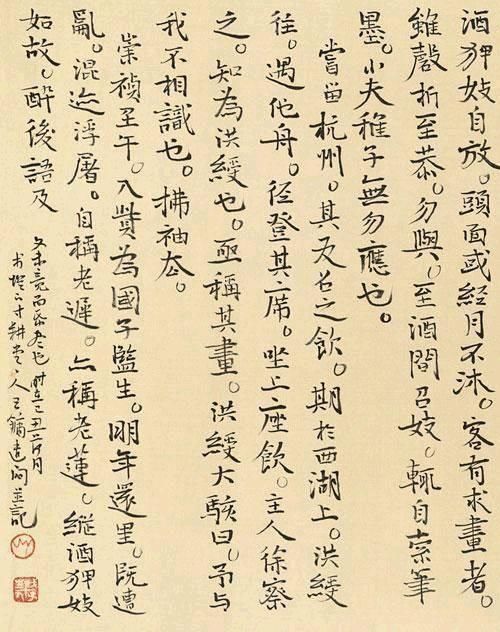 酒狎妓自放。頭面或經月不沐。客有求畫者。
雖罄折至恭。勿與。至酒間召妓。輒自索筆
墨。小夫稚子無勿應也。
嘗留杭州。其友召之飲。期於西湖上。洪綬
往。遇他舟。徑登其席。坐上座飲。主人徐察
之。知為洪綬也。亟稱其畫。洪綬大駭曰。子与
我不相識也。拂袖去。
崇禎壬午。入貲為國子監生。明年還里。既遭
亂。混迹浮屠。自稱老遲。亦稱老蓮。縱酒狎妓
如故。醉後語及
文未竟而紙尽也 時在己丑二月
耕堂主人王鏞遣閒並記